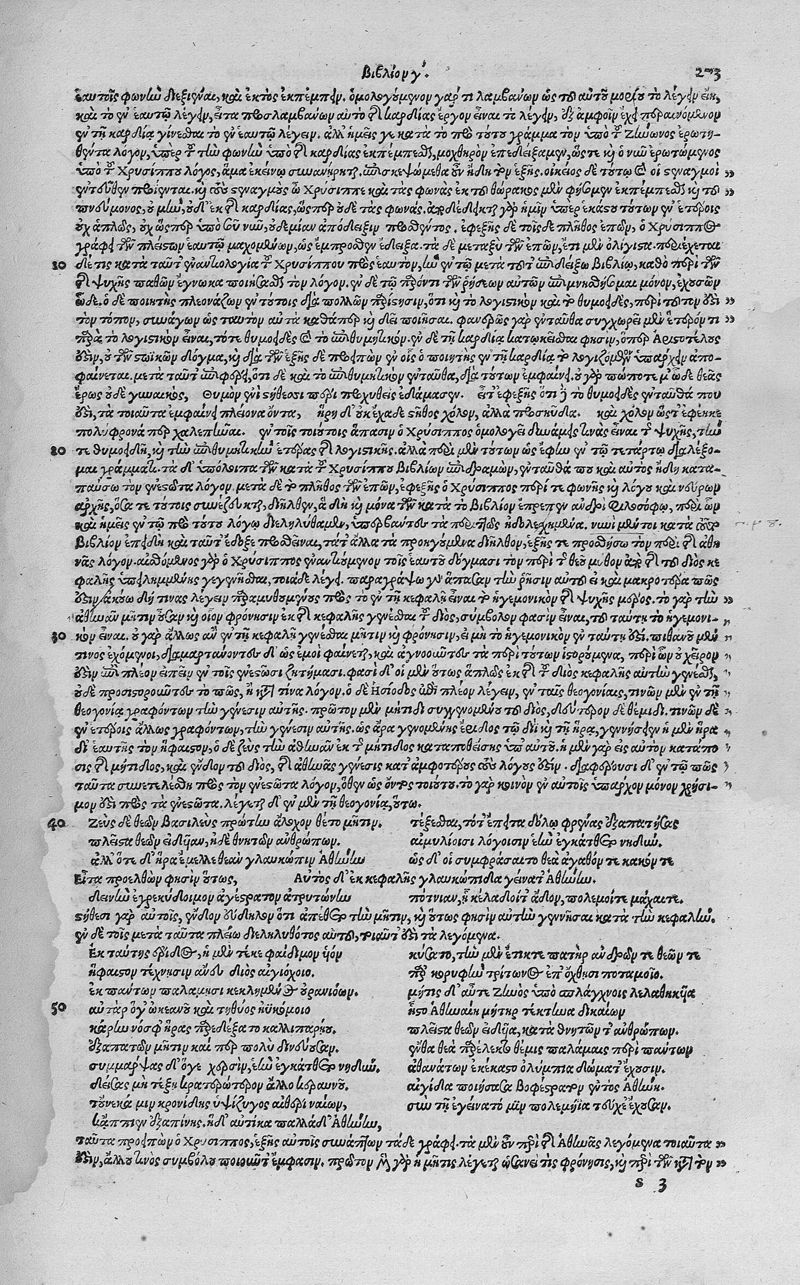 Βιβλίον γ΄. 273
ἑαυτοῖς φωνὴν διεξιέναι, καὶ ἐκτὸς ἐκπέμπειν. ὁμολογούμενον γάρ τι λαμβάνων ὡς τοῦ αὐτοῦ μορίου τὸ λέγειν εἶναι,
καὶ τὸ ἐν ἑαυτῷ λέγειν, εἶτα προσλαμβάνων αὐτὸ τῆς καρδίας ἔργον εἶναι τὸ λέγειν, ἐξ ἀμφοῖν ἔχει περαινόμενον
ἐν τῇ καρδίᾳ γίνεσθαι τὸ ἐν ἑαυτῷ λέγειν. ἀλλ' ἡμεῖς γε κατὰ τὸ πρὸ τούτου γράμμα τὸν ὑπὸ τοῦ Ζήνωνος ἐρωτη-
θέντα λόγον, ὑπὲρ τοῦ τὴν φωνὴν ὑπὸ τῆς καρδίας ἐκπέμπεσθαι, μοχθηρὸν ἐπεδείξαμεν, ὥστε καὶ ὁ νῦν ἐρωτώμενος
ὑπὸ τοῦ Χρυσίππου λόγος, ἅμα ἐκείνῳ συναιρεῖται. ἐπισκεψώμεθα οὖν ἤδη τὸν ἑξῆς. οἰκείως δὲ τούτῳ καὶ οἱ στεναγμοὶ
ἐντεῦθεν προΐενται. καὶ ὁ στεναγμὸς ὦ Χρύσιππε καὶ τὰς φωνὰς ἐκ τοῦ θώρακος μὲν φήσομεν ἐκπέμπεσθαι καὶ τοῦ
πνεύμονος, οὐ μὴν, οὐδ' ἐκ τῆς καρδίας, ὥσπερ οὐδὲ τὰς φωνάς. ἀποδέδεικται γὰρ ἡμῖν ὑπὲρ ἑκάστου τούτων ἐν ἑτέροις
οὐχ ἁπλῶς, οὐχ ὥσπερ ὑπὸ σοῦ νῦν, οὐδεμίαν ἀπόδειξιν προσθέντος. ἐφεξῆς δὲ τοῖσδε πλῆθος ἐπῶν, ὁ Χρύσιππος
γράφει τῶν πλείστων ἑαυτῷ μαχομένων, ὡς ἔμπροσθεν ἔδειξα. τὰ δὲ μεταξὺ τῶν ἐπῶν, ἔτι μὲν ὀλίγιστα. περιέχεται
10 δέ τις κατὰ ταῦτ' ἐναντιολογία τοῦ Χρυσίππου πρὸς ἑαυτὸν, ἣν ἐν τῷ μετὰ τοῦτ' ἐπιδείξω βιβλίῳ, καθὸ περὶ τῶν
τῆς ψυχῆς παθῶν ἔγνωκα ποιήσασθαι τὸν λόγον. ἐν δὲ τῷ παρόντι τῶν ῥήσεων αὐτῶν ἐπιμνησθήσομαι μόνον, ἐχουσῶν
ὧδε. ὁ δὲ ποιητὴς πλεονάζων ἐν τούτοις διὰ πολλῶν παρίστησιν, ὅτι καὶ τὸ λογιστικὸν καὶ τὸ θυμοειδὲς, περὶ τοῦτόν ἐστι
τὸν τόπον, συνάγων ὡς ταυτὸν αὐτὰ καθάπερ καὶ δεῖ ποιῆσαι. φανερῶς γὰρ ἐνταῦθα συγχωρεῖ μὲν ἕτερόν τι
παρὰ τὸ λογιστικὸν εἶναι, τό τε θυμοειδὲς καὶ τὸ ἐπιθυμητικόν. ἐν δὲ τῇ καρδίᾳ κατῳκεῖσθαί φησιν, ὅπερ Ἀριστοτέλους
ἐστὶν, οὐ τῶν στωϊκῶν δόγμα, καὶ διὰ τῶν ἑξῆς δὲ προειπὼν ἐν οἷς ὁ ποιητὴς ἐν τῇ καρδίᾳ τὸ λογιζόμενον ὑπάρχειν ἀπο-
φαίνεται. μετὰ ταῦτ' ἐπιφέρει, ὅτι δὲ καὶ τὸ ἐπιθυμητικὸν ἐνταῦθα, διὰ τούτων ἐμφαίνει. οὐ γὰρ πώποτέ μ' ὧδε θεᾶς
ἔρως οὐδὲ γυναικὸς, Θυμὸν ἐνὶ στήθεσσι περὶ προχυθεὶς ἐδάμασσεν. εἶτ' ἐφεξῆς ὅτι καὶ τὸ θυμοειδὲς ἐνταῦθά που
ἐστὶ, τὰ τοιαῦτα ἐμφαίνει πλείονα ὄντα, ἥρῃ δ' οὐκ ἔχαδε στῆθος χόλον, ἀλλὰ προσηύδα. καὶ χόλον ὥστ' ἐφέηκε
πολύφρονά περ χαλεπῆναι. ἐν τοῖς τοιούτοις ἅπασιν ὁ Χρύσιππος ὁμολογεῖ δυνάμεις τινὰς εἶναι τῆς ψυχῆς, τήν
20 τε θυμοειδῆ, καὶ τὴν ἐπιθυμητικὴν ἑτέρας τῆς λογιστικῆς. ἀλλὰ περὶ μὲν τούτων ὡς ἔφην ἐν τῷ τετάρτῳ διαλέξο-
μαι γράμματι. τὰ δ' ὑπόλοιπα τῶν κατὰ τὸ Χρυσίππου βιβλίον ἐπιδραμὼν, ἐνταῦθά που καὶ αὐτὸς ἤδη κατα-
παύσω τὸν ἐνεστῶτα λόγον. μετὰ δὲ τὸ πλῆθος τῶν ἐπῶν, ἐφεξῆς ὁ Χρύσιππος περί τε φωνῆς καὶ λόγου καὶ νεύρων
ἀρχῆς, ὅσα τε τούτοις συνέζευκται, διῆλθεν, ἃ δὴ καὶ μόνα τῶν κατὰ τὸ βιβλίον ἔπρεπεν ἀνδρὶ φιλοσόφῳ, περὶ ὧν
καὶ ἡμεῖς ἐν τῷ πρὸ τούτου λόγῳ διεληλύθαμεν, ὑπερβάντος τὰ περὶ τῆσδε ἠνωχλημένα. νυνὶ μέντοι κατὰ τόδε
βιβλίον ἐπειδὴ καὶ ταῦτ' ἔδοξε προσθεῖναι, τά τ' ἄλλα τὰ προηγούμενα διῆλθον, ἑξῆς τε προσθήσω τὸν περὶ τῆς ἀθη-
νᾶς λόγον. αἰσθόμενος γὰρ ὁ Χρύσιππος ἐναντιούμενον τοῖς ἑαυτοῦ δόγμασι τὸν περὶ τῆς θεοῦ μῦθον ἀπὸ τῆς τοῦ διὸς κε-
φαλῆς ὑπειλημμένης γεγενῆσθαι, τοιάδε λέγει. παραγράψω γὰρ ἅπασαν τὴν ῥῆσιν αὐτοῦ εἰ καὶ μακροτέρα πώς
ἐστιν. ἀκούω δή τινας λέγειν παραμυθουμένους πρὸς τὸ ἐν τῇ κεφαλῇ εἶναι τὸ ἡγεμονικὸν τῆς ψυχῆς μέρος. τὸ γὰρ τὴν
ἀθηνᾶν μῆτιν οὖσαν καὶ οἷον φρόνησιν ἐκ τῆς κεφαλῆς γενέσθαι τοῦ διὸς, σύμβολόν φασιν εἶναι, τοῦ ταύτῃ τὸ ἡγεμονι-
30 κὸν εἶναι. οὐ γὰρ ἄλλως ἂν ἐν τῇ κεφαλῇ γενέσθαι μῆτιν καὶ φρόνησιν, εἰ μὴ τὸ ἡγεμονικὸν ἐν ταύτῃ ἐστὶ. πιθανοῦ μέν
τινος ἐχόμενοι, διαμαρτάνοντες δ' ὡς ἐμοὶ φαίνεται, καὶ ἀγνοοῦντες τὰ περὶ τούτων ἱστορούμενα, περὶ ὧν οὐ χεῖρον
ἐστὶν ἐπὶ πλέον εἰπεῖν ἐν τοῖς ἐνεστῶσι ζητήμασι. φασὶ δ' οἱ μὲν οὕτως ἁπλῶς ἐκ τῆς τοῦ διὸς κεφαλῆς αὐτὴν γενέσθαι,
οὐδὲ προσιστοροῦντες τὸ πῶς, ἢ κατὰ τίνα λόγον. ὁ δὲ Ἡσίοδος ἐπὶ πλέον λέγει, ἐν ταῖς θεογονίαις, τινῶν μὲν ἐν τῇ
θεογονίᾳ γραφόντων τὴν γένεσιν αὐτῆς. πρῶτον μὲν μήτιδι συγγενομένου τοῦ διὸς, δεύτερον δὲ θέμιδι. τινῶν δὲ
ἐν ἑτέροις ἄλλως γραφόντων, τὴν γένεσιν αὐτῆς. ὡς ἄρα γενομένης ἔριδος τῷ διὶ καὶ τῇ ἥρᾳ, γεννήσειεν ἡ μὲν ἥρα
δι' ἑαυτῆς τὸν ἥφαιστον, ὁ δὲ ζεὺς τὴν ἀθηνᾶν ἐκ τῆς μήτιδος καταποθείσης ὑπ' αὐτοῦ. ἡ μὲν γὰρ εἰς αὐτὸν κατάπο-
σις τῆς μήτιδος, καὶ ἔνδον τοῦ διὸς, τῆς ἀθηνᾶς γένεσις κατ' ἀμφοτέρους τοὺς λόγους ἐστίν. διαφέρουσι δ' ἐν τῷ πῶς
ταῦτα συνετελέσθη πρὸς τὸν ἐνεστῶτα λόγον, ὅθεν ὡς ὄντος τοιούτου. τὸ γὰρ κοινὸν ἐν αὐτοῖς ὑπάρχον μόνον χρήσι-
μόν ἐστι πρὸς τὰ ἐνεστῶτα. λέγεται δ' ἐν μὲν τῇ θεογονίᾳ, οὕτω.
40 Ζεὺς δὲ θεῶν βασιλεὺς πρώτην ἄλοχον θέτο μῆτιν. τέξεσθαι, τότ' ἔπειτα δόλῳ φρένας ἐξαπατήσας
πλεῖστα θεῶν εἰδυῖαν, ἰδὲ θνητῶν ἀνθρώπων. αἱμυλίοισι λόγοισιν ἑὴν ἐγκάτθετο νηδύν.
ἀλλ' ὅτε δ' ἥρα ἔμελλε θεὰν γλαυκῶπιν Ἀθήνην ὡς δ' οἱ συμφράσαιτο θεὰ ἀγαθόν τε κακόν τε
Εἶτα προελθών φησιν οὕτως, Αὐτὸς δ' ἐκ κεφαλῆς γλαυκώπιδα γείνατ' Ἀθήνην.
δεινὴν ἐγρεκύδοιμον ἀγέστρατον ἀτρυτώνην πότνιαν, ᾗ κέλαδοί τ' ἅδον, πόλεμοί τε μάχαι τε.
στήθεσι γὰρ αὐτοῖς, ἔνδον εὔδηλον ὅτι ἀπέθετο τὴν μῆτιν, καὶ οὕτως φησὶν αὐτὴν γεννῆσαι κατὰ τὴν κεφαλήν.
ἐν δὲ τοῖς μετὰ ταῦτα πλείω διεληλυθότος αὐτοῦ, τοιαῦτ' ἐστὶ τὰ λεγόμενα.
Ἐκ ταύτης ἔριδος, ἡ μὲν τέκε φαίδιμον υἱὸν κύσατο, τὴν μὲν ἔτικτε πατὴρ ἀνδρῶν τε θεῶν τε
ἥφαιστον τέχνῃσιν ἄνευ διὸς αἰγιόχοιο. πὰρ κορυφὴν τρίτωνος ἐπ' ὄχθῃσι ποταμοῖο.
ἐκ πάντων παλάμῃσι κεκλημένος οὐρανιόων. μῆτις δ' αὖτε ζηνὸς ὑπὸ σπλάγχνοις λελαθηκυῖα
50 αὐτὰρ ὅγ' ὠκεανοῦ καὶ τηθύος ἠϋκόμοιο ἧστο Ἀθηναίη μήτηρ τέκτηνα δικαίων
κάρην νόσφ' ἥρας παρελέξατο καλλιπαρῄου. πλεῖστα θεῶν εἰδυῖα, κατὰ θνητῶν τ' ἀνθρώπων.
ἐξαπατῶν μῆτιν καί περ πολὺ δινεύουσαν. ἔνθα θεὰ παρέλεκτο θέμις παλάμαις περὶ πάντων
συμμάρψας δ' ὅγε χερσὶν, ἑὴν ἐγκάτθετο νηδύν. ἀθανάτων ἐκέκαστο ὀλύμπια δώματ' ἔχουσιν.
δείσας μὴ τέξῃ κρατερώτερον ἄλλο κεραυνοῦ. αἰγίδα ποιήσασα φοβέστρατον ἔντος Ἀθήνης.
τοὔνεκά μιν κρονίδης ὑψίζυγος αἰθέρι ναίων, σὺν τῇ ἐγείνατό μιν πολεμήϊα τεύχε' ἔχουσαν.
κάππιεν ἐξαπίνης. ἡ δ' αὐτίκα παλλάδ' Ἀθήνην,
ταῦτα προειπὼν ὁ Χρύσιππος, ἑξῆς αὐτοῖς συνάπτων τάδε γράφει. τὰ μὲν οὖν περὶ τῆς Ἀθηνᾶς λεγόμενα τοιαῦτά
ἐστιν, ἄλλου τινὸς συμβόλου ποιοῦντ' ἔμφασιν. πρῶτον μὲν γὰρ ἡ μῆτις λέγεται ὡσανεί τις φρόνησις, καὶ περὶ τῶν κατὰ τὸν
s 3